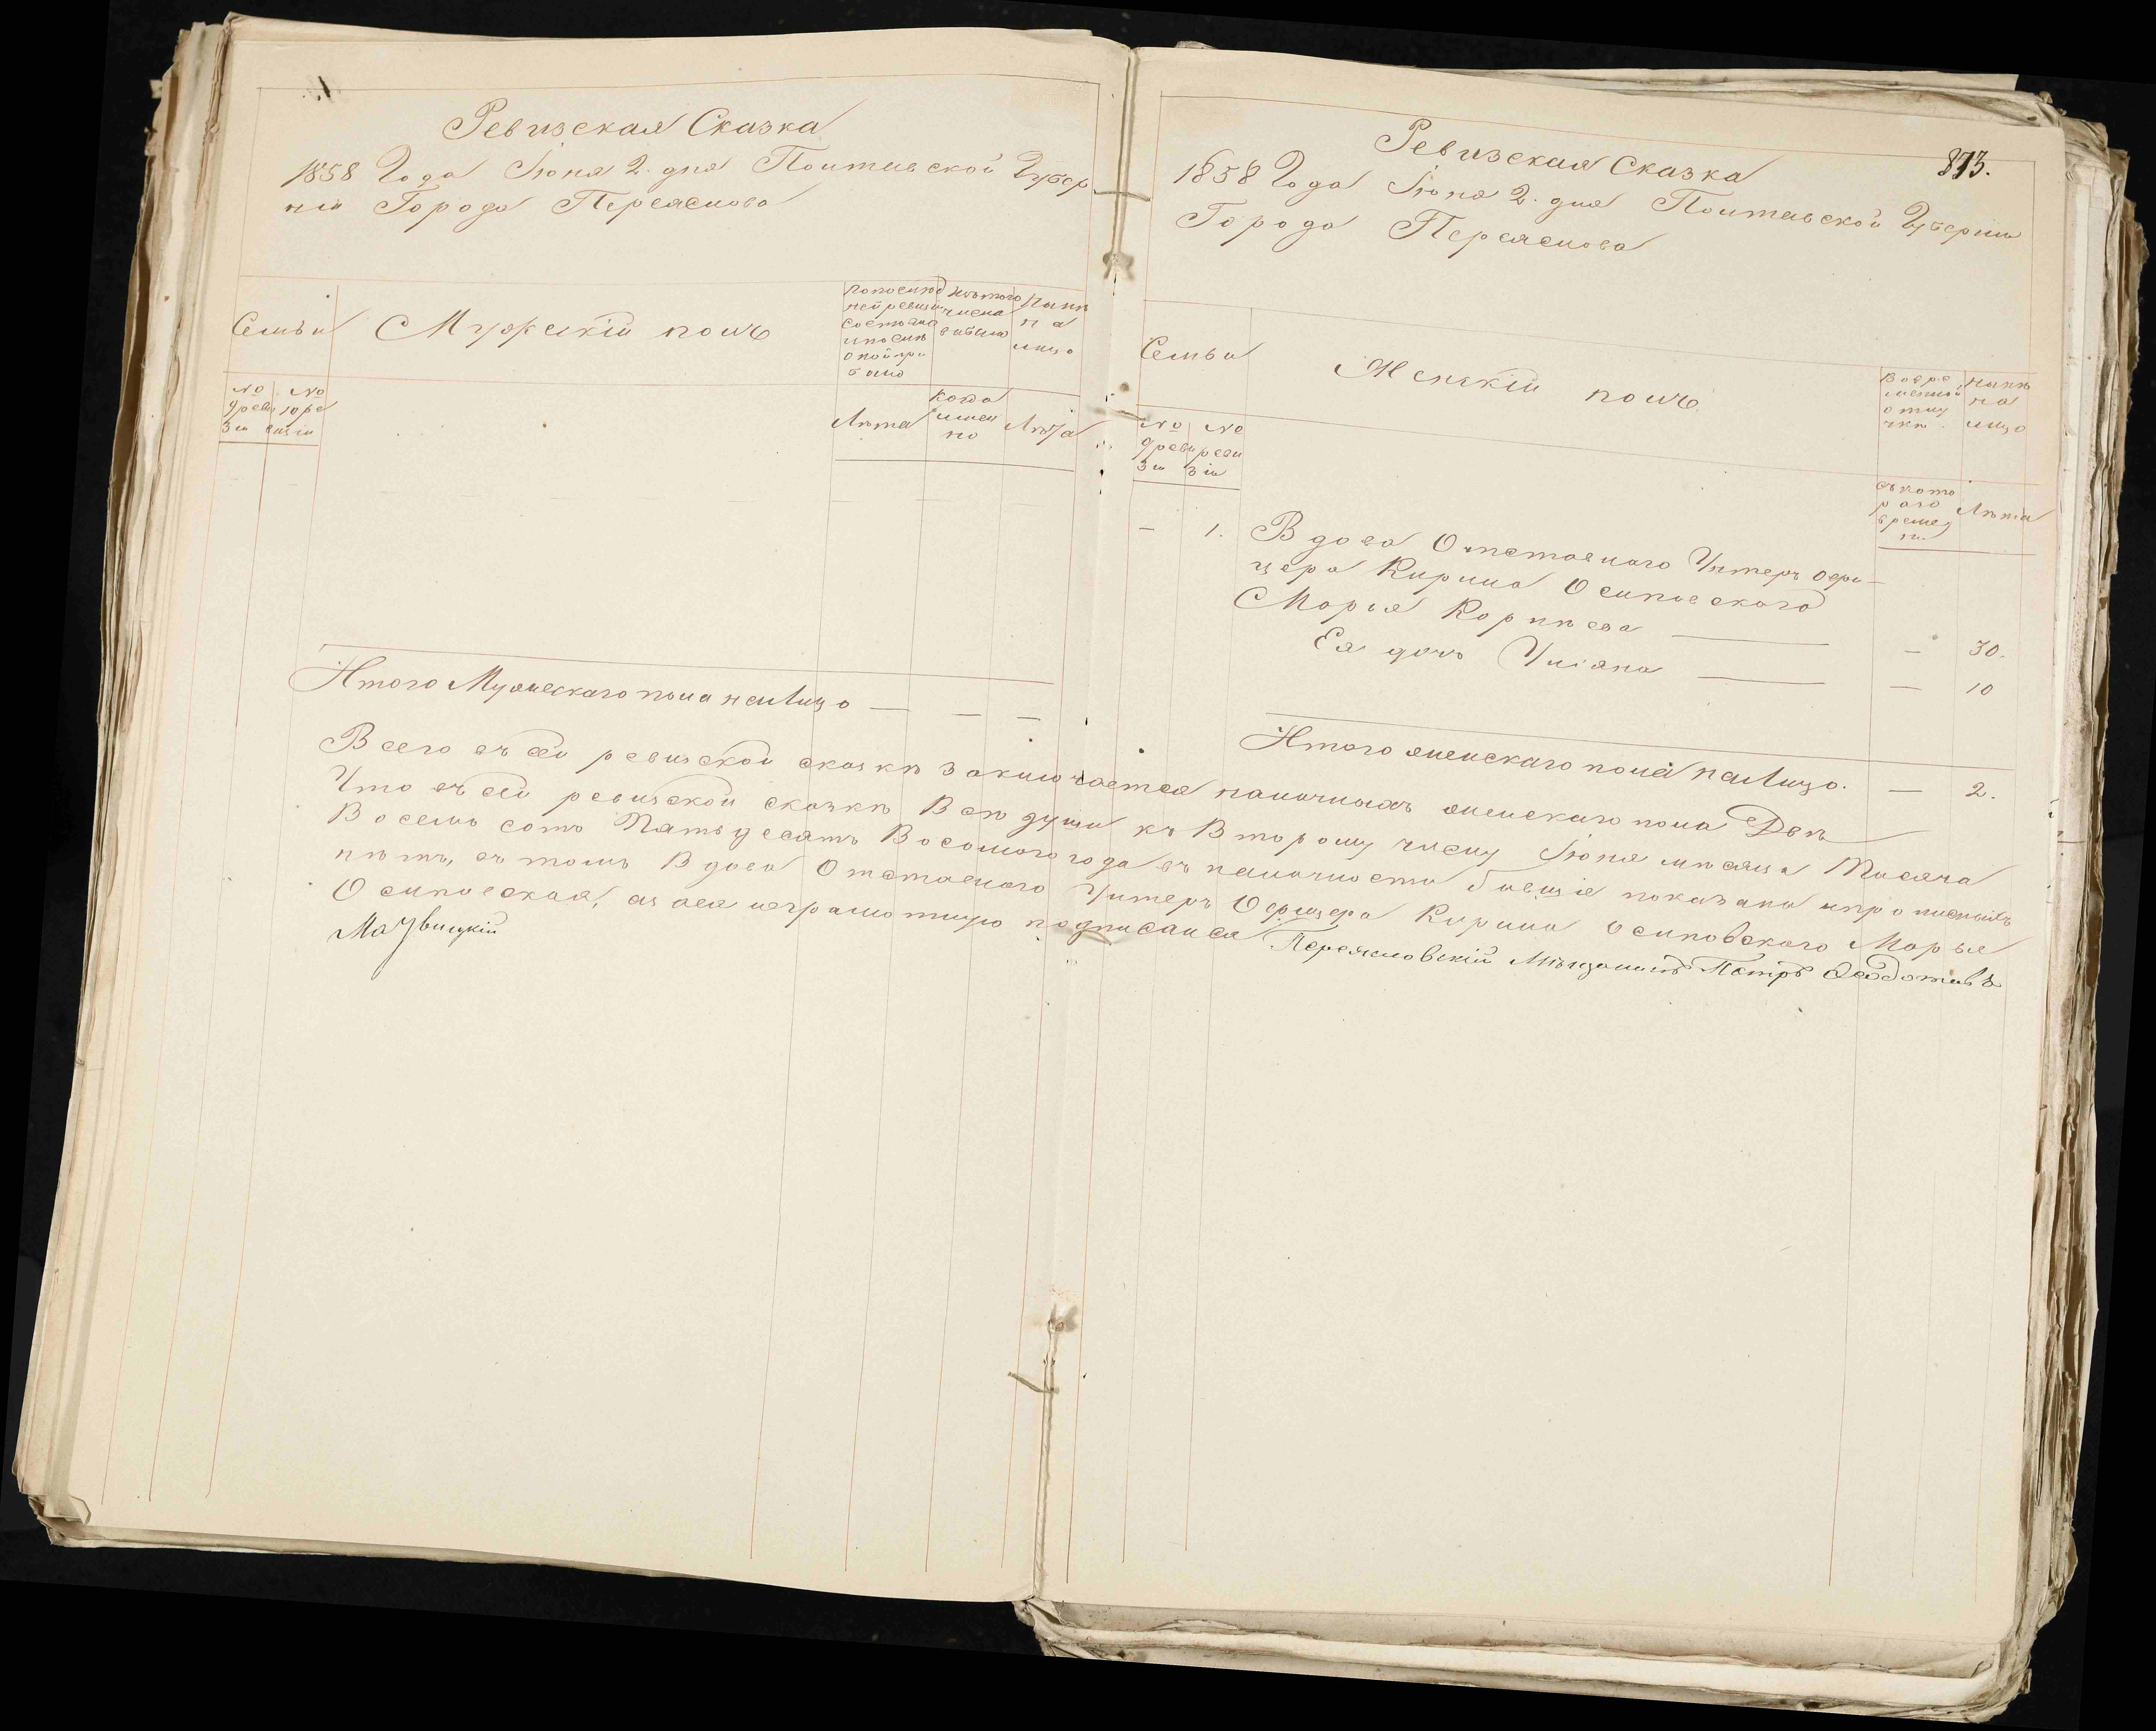 Ревизская Сказка
1858 Года Іюня 2. дня Полтавской Губер
ніи Города Переяслова
Семьи
Мужескій полъ
По послѣд
ней ревизіи
состояло
и послѣ
оной при
было
Изъ того
числа
выбыло
Нынѣ
на
лицо
№ № 
9 реви 10 ре
зіи визіи
Лѣта
Когда
имен
но
Лѣта
Итого Мужескаго пола на Лицо — — —
873.
Ревизская Сказка
1858 Года Іюня 2. дня Полтавской Губерніи
Города Переяслова
Семьи
Женскій полъ
Во вре
менной
отлу
чкѣ
Нынѣ
на
лицо
№ №
9 реви реви
зіи зіи
Съ кото
раго
време
ни
Лѣта
— 1. Вдова Отставного Унтеръ Офи-
цера Кирила Осиповского
Марья Корнѣева — — 30.
Ея дочь Уліяна — — 10
Итого женскаго пола на Лицо. — 2.
Всего въ сей ревизской сказкѣ заключается наличныхъ женскаго пола Двѣ
Что въ сей ревизской сказкѣ Всѣ души къ Второму числу Іюня мѣсяца Тысяча
Восемь сотъ Пятьдесятъ Восьмого года въ наличности бывшія показаны и прописныхъ
нѣтъ, въ томъ Вдова Отставного Унтеръ Офицера Кирила Осиповского Марья
Осиповская, а за нея неграмотную подписался Переясловскій Мѣщанинъ Петръ Федотовъ